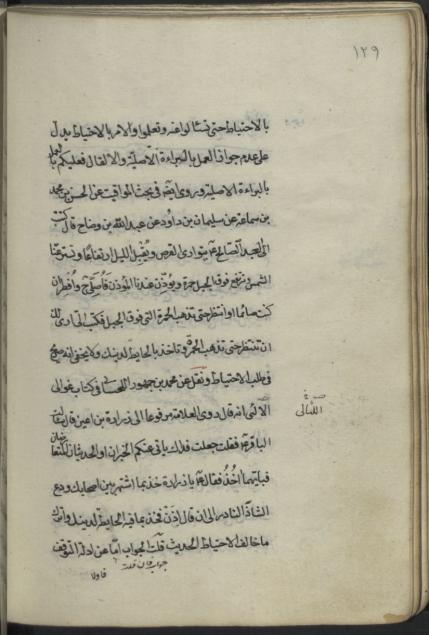 ١٢٩
بالاحتياط حتى تسئلوا عنه وتعلموا والامر بالاحتياط يدل
على عدم جواز العمل بالبراءة الاصلية والا لقال فعليكم بالعمل
بالبراءة الاصلية وروى ايضا في بحث المواقيت عن الحسن بن محمد
بن سماعة عن سليمان بن داود عن عبد الله بن وضاح قال كتبت
الى العبد الصالح ع يتوارى القرص ويقبل الليل ارتفاعا وتستر عنا
الشمس وترتفع فوق الجبل حمرة ويؤذن عندنا المؤذن فاصلي ح وافطر ان
كنت صائما او انتظر حتى تذهب الحمرة التي فوق الجبل فكتب الي ارى لك
ان تنتظر حتى تذهب الحمرة وتاخذ بالحايطة لدينك ولا يخفى انه صريح
في طلب الاحتياط ونقل عن محمد بن جمهور اللحساني في كتاب غوالي
اللئالي
الالئى انه قال روى العلامة مرفوعا الى زرارة بن اعين قال سالت
الباقر ع فقلت جعلت فداك ياتي عنكم الخبران او الحديثان المتعارضان
فبايهما آخذ فقال ع يا زرارة خذ بما اشتهر بين اصحابك ودع
الشاذ النادر الى ان قال اذن فخذ بما فيه الحايطة لدينك واترك
ما خالف الاحتياط الحديث قلت الجواب اما عن ادلة التوقف
فاولا